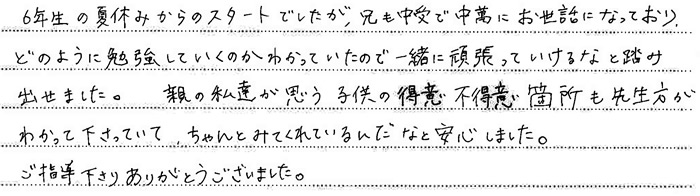 6年生の夏休みからのスタートでしたが、兄も中受で中萬にお世話になっており、
どのように勉強していくのかわかっていたので一緒に頑張っていけるなと踏み
出せました。 親の私達が思う子供の得意不得意箇所も先生方が
わかって下さっていて、ちゃんとみてくれているんだなと安心しました。
ご指導下さりありがとうございました。